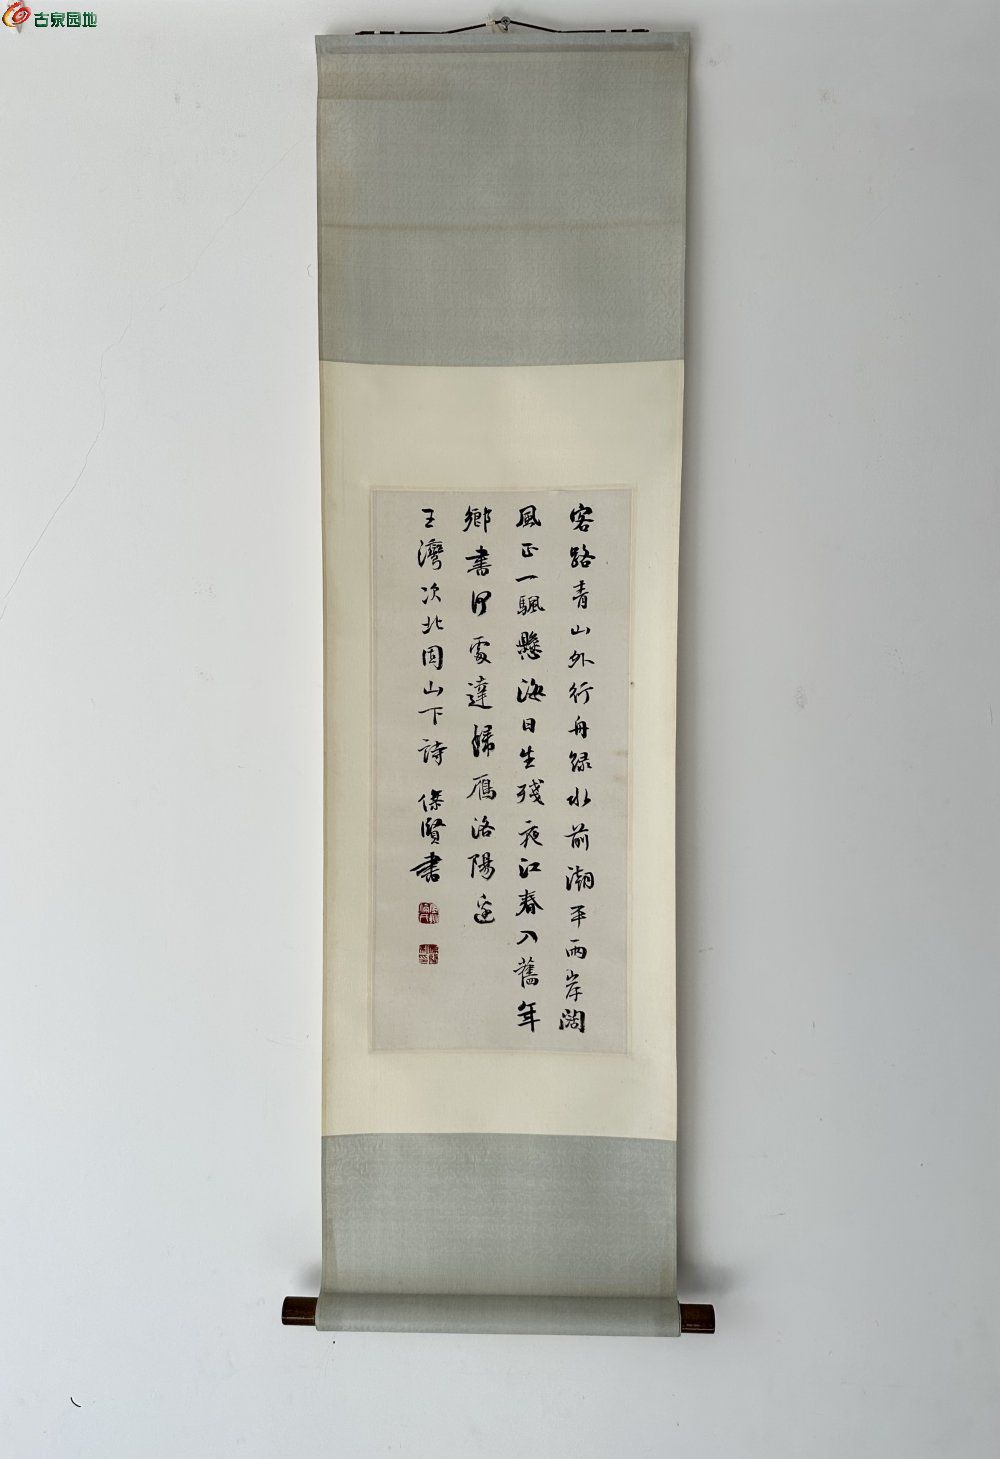 古泉园地
客路青山外行舟綠水前潮平兩岸闊
風正一颿懸海日生殘夜江春入舊年
鄉書何處達歸鴈洛陽邊
王灣次北固山下詩 賢書